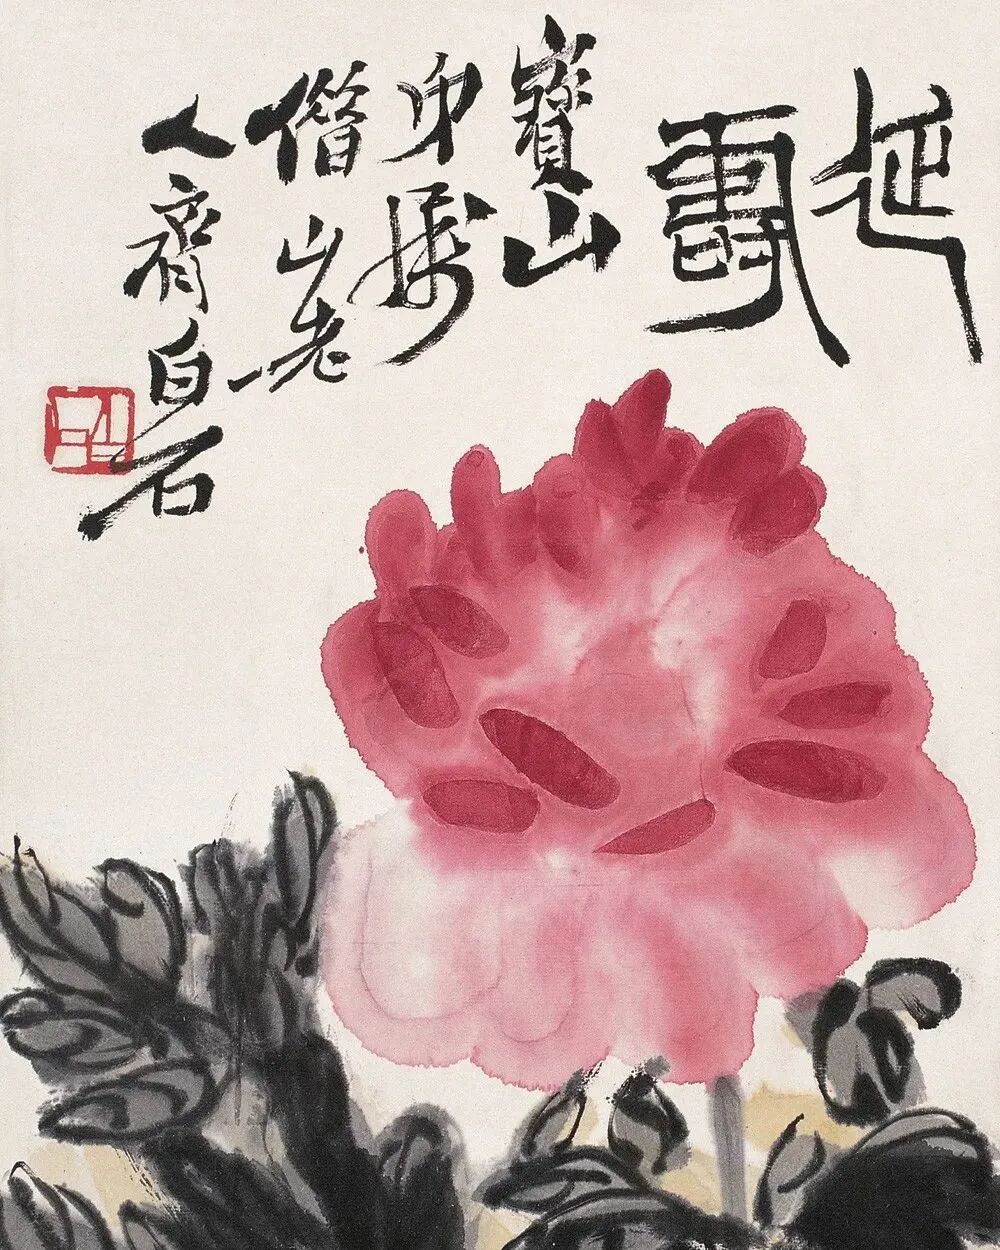 延
壽
寶山
弟屬
借山老
人齊白石